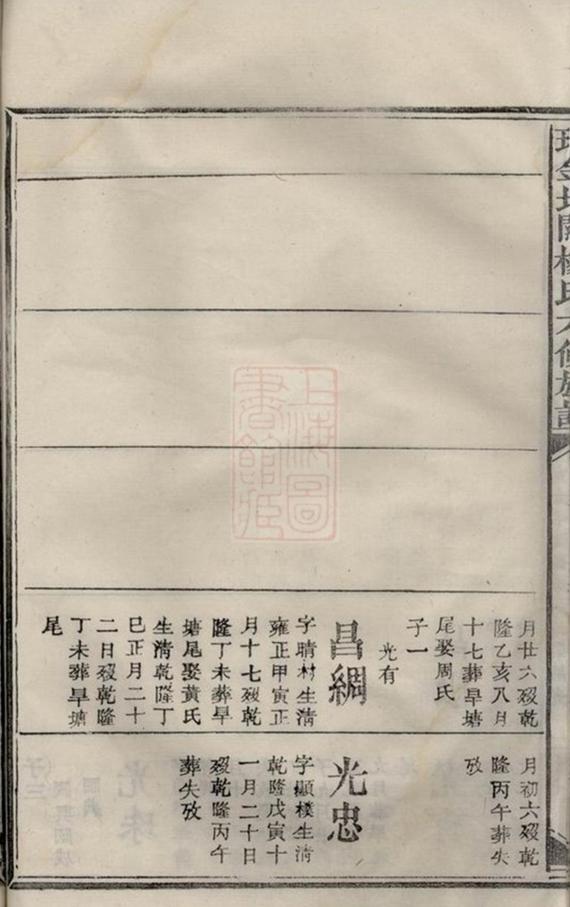 月廿六歿乾
隆乙亥八月
十七葬旱塘
尾娶周氏
子一
光有
昌綢
字晴材生清
雍正甲寅正
月十七歿乾
隆丁未葬旱
塘尾娶黃氏
生清乾隆丁
巳正月二十
二日歿乾隆
丁未葬旱塘
尾
月初六歿乾
隆丙午葬失
攷
光忠
字顯樸生清
乾隆戊寅十
一月二十日
歿乾隆丙午
葬失攷
上海圖
書館藏